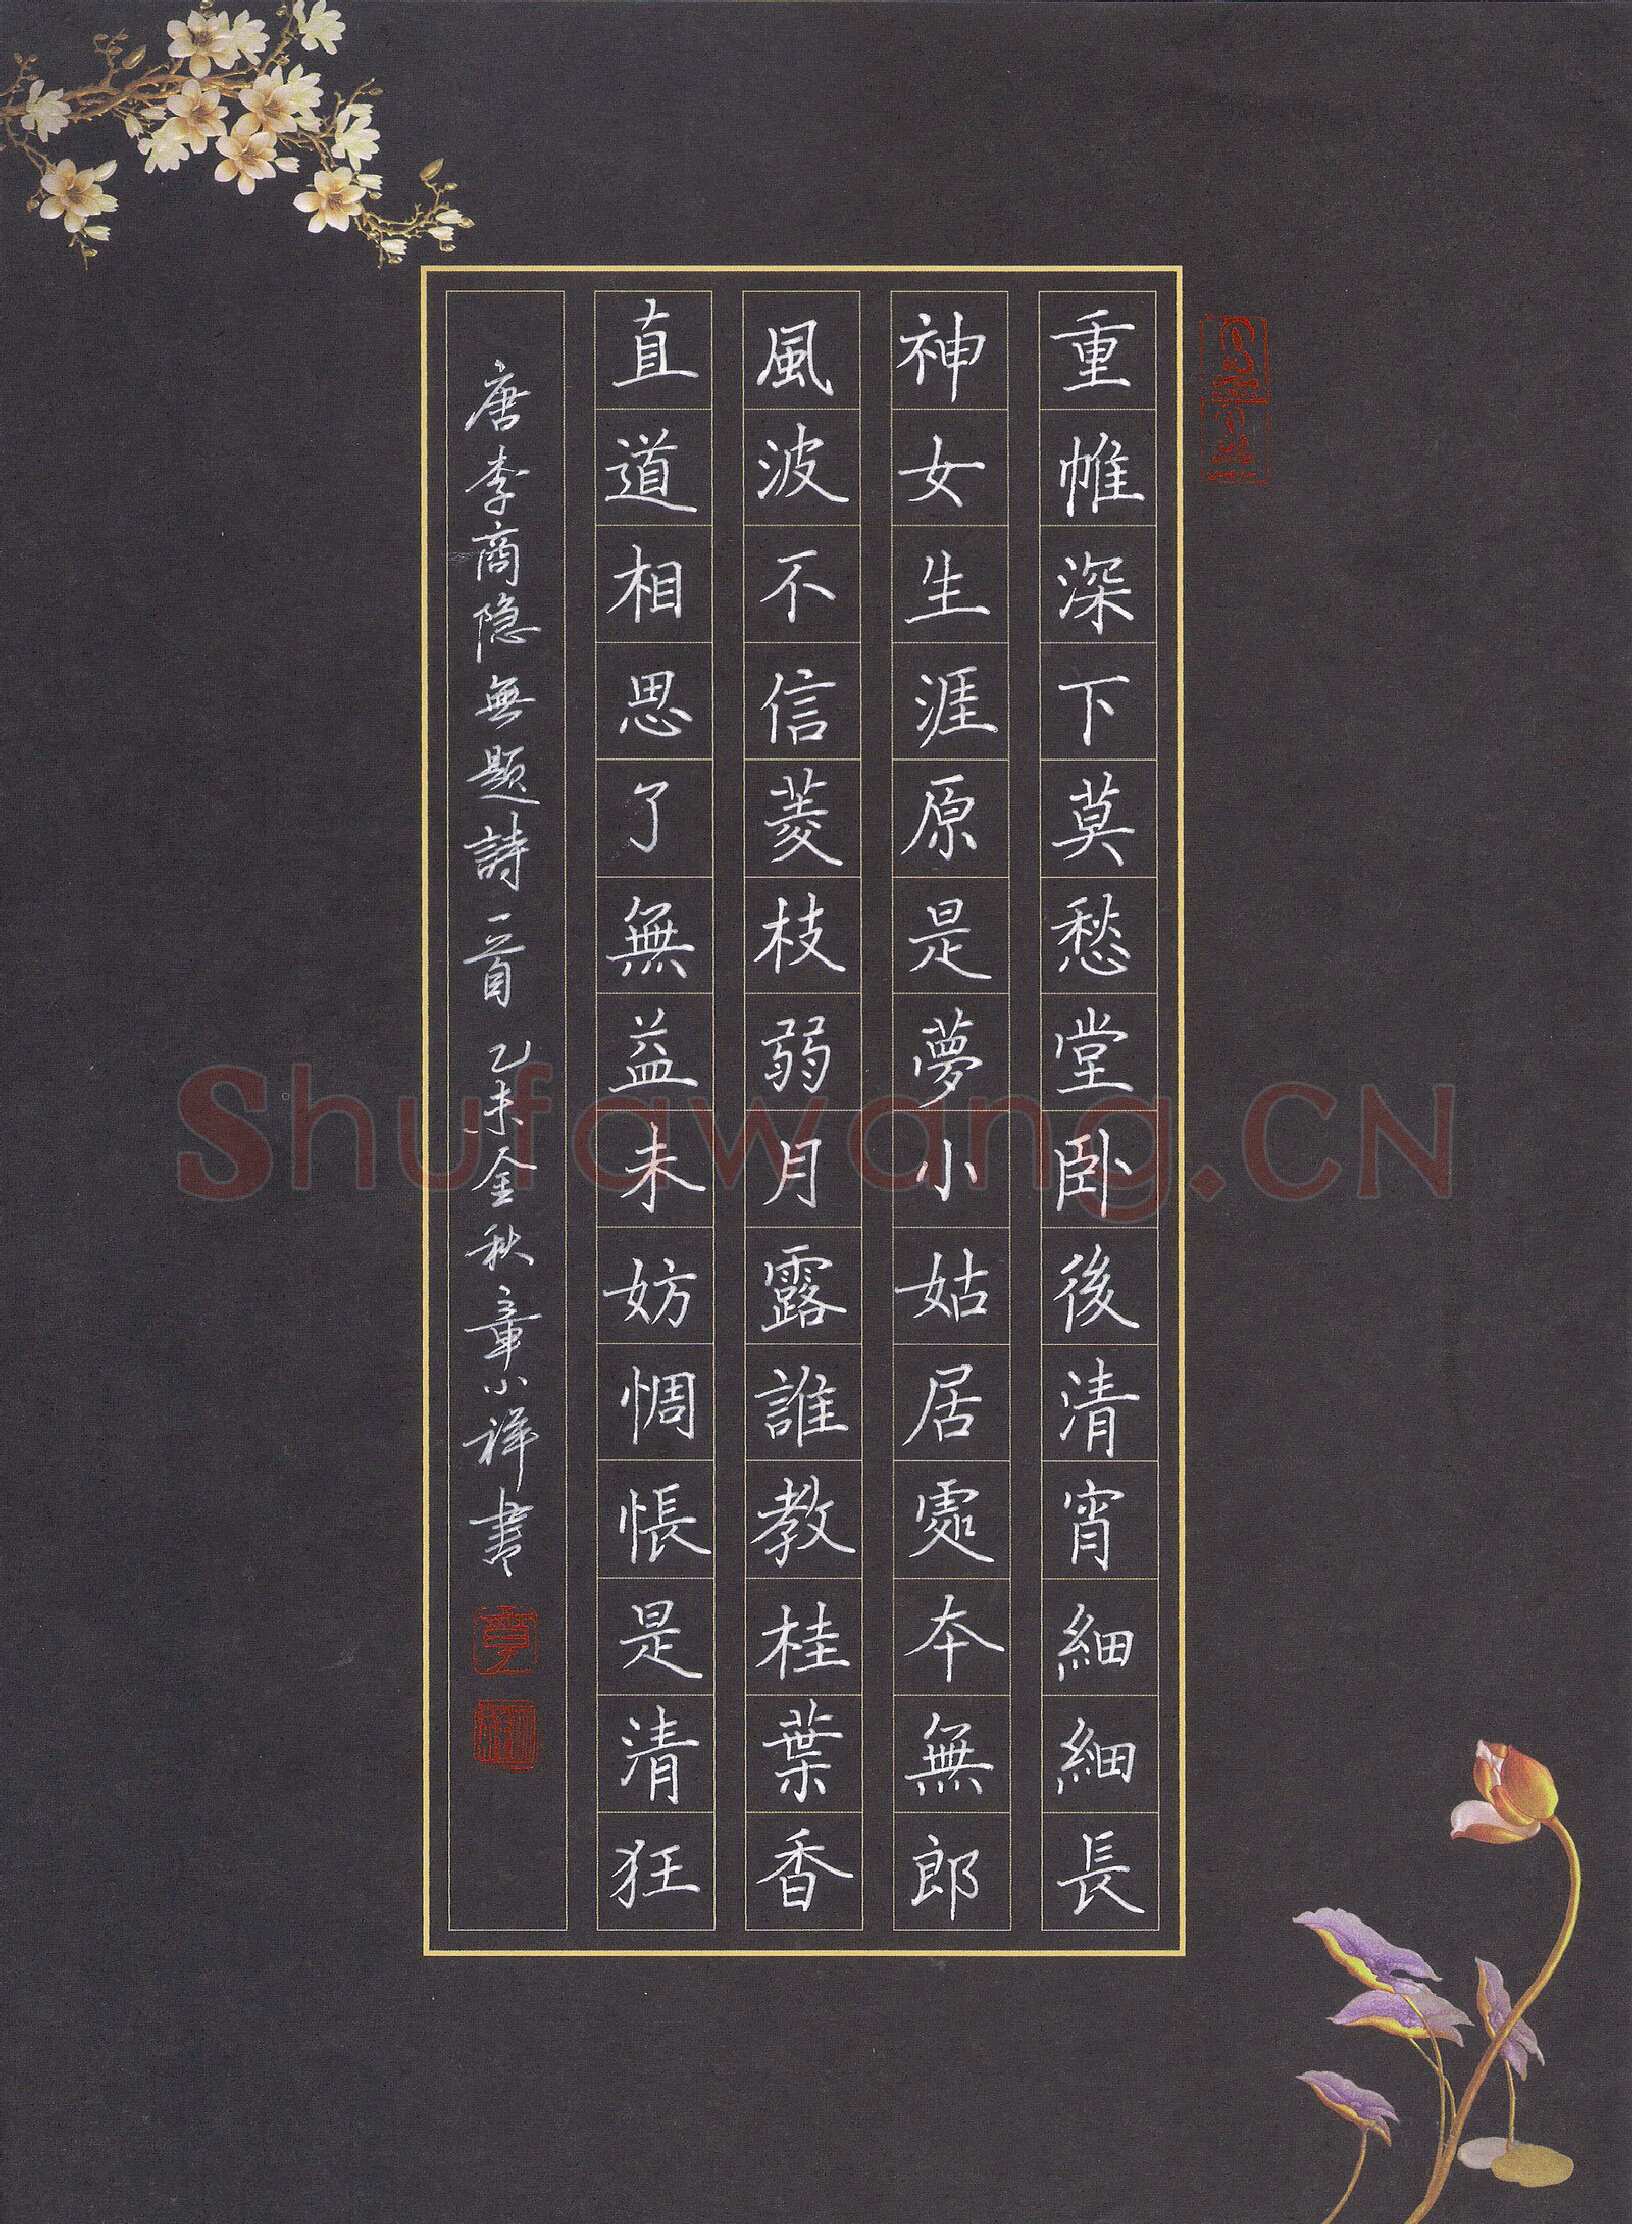 重帷深下莫愁堂卧後清宵細細長
神女生涯原是夢小姑居處本無郎
風波不信菱枝弱月露誰教桂葉香
直道相思了無益未妨惆悵是清狂
唐李商隐無題詩一首乙未金秋章小祥書
Shufawang.CN